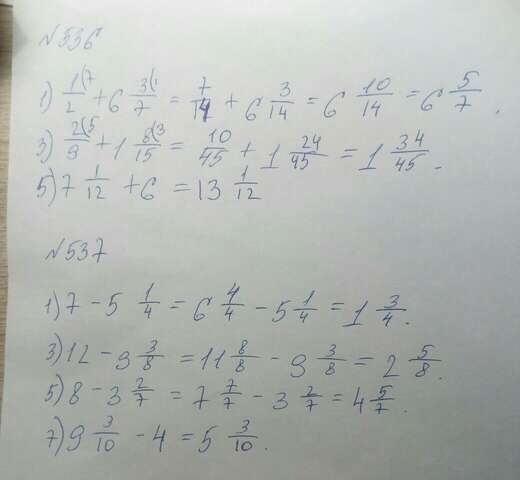 №536
1) 1/2 (7 + 6 3/7 (1 = 7/14 + 6 3/14 = 6 10/14 = 6 5/7.
3) 2/9 (5 + 1 8/15 (3 = 10/45 + 1 24/45 = 1 34/45.
5) 7 1/12 + 6 = 13 1/12
№537
1) 7 - 5 1/4 = 6 4/4 - 5 1/4 = 1 3/4.
3) 12 - 9 3/8 = 11 8/8 - 9 3/8 = 2 5/8.
5) 8 - 3 2/7 = 7 7/7 - 3 2/7 = 4 5/7.
7) 9 3/10 - 4 = 5 3/10.